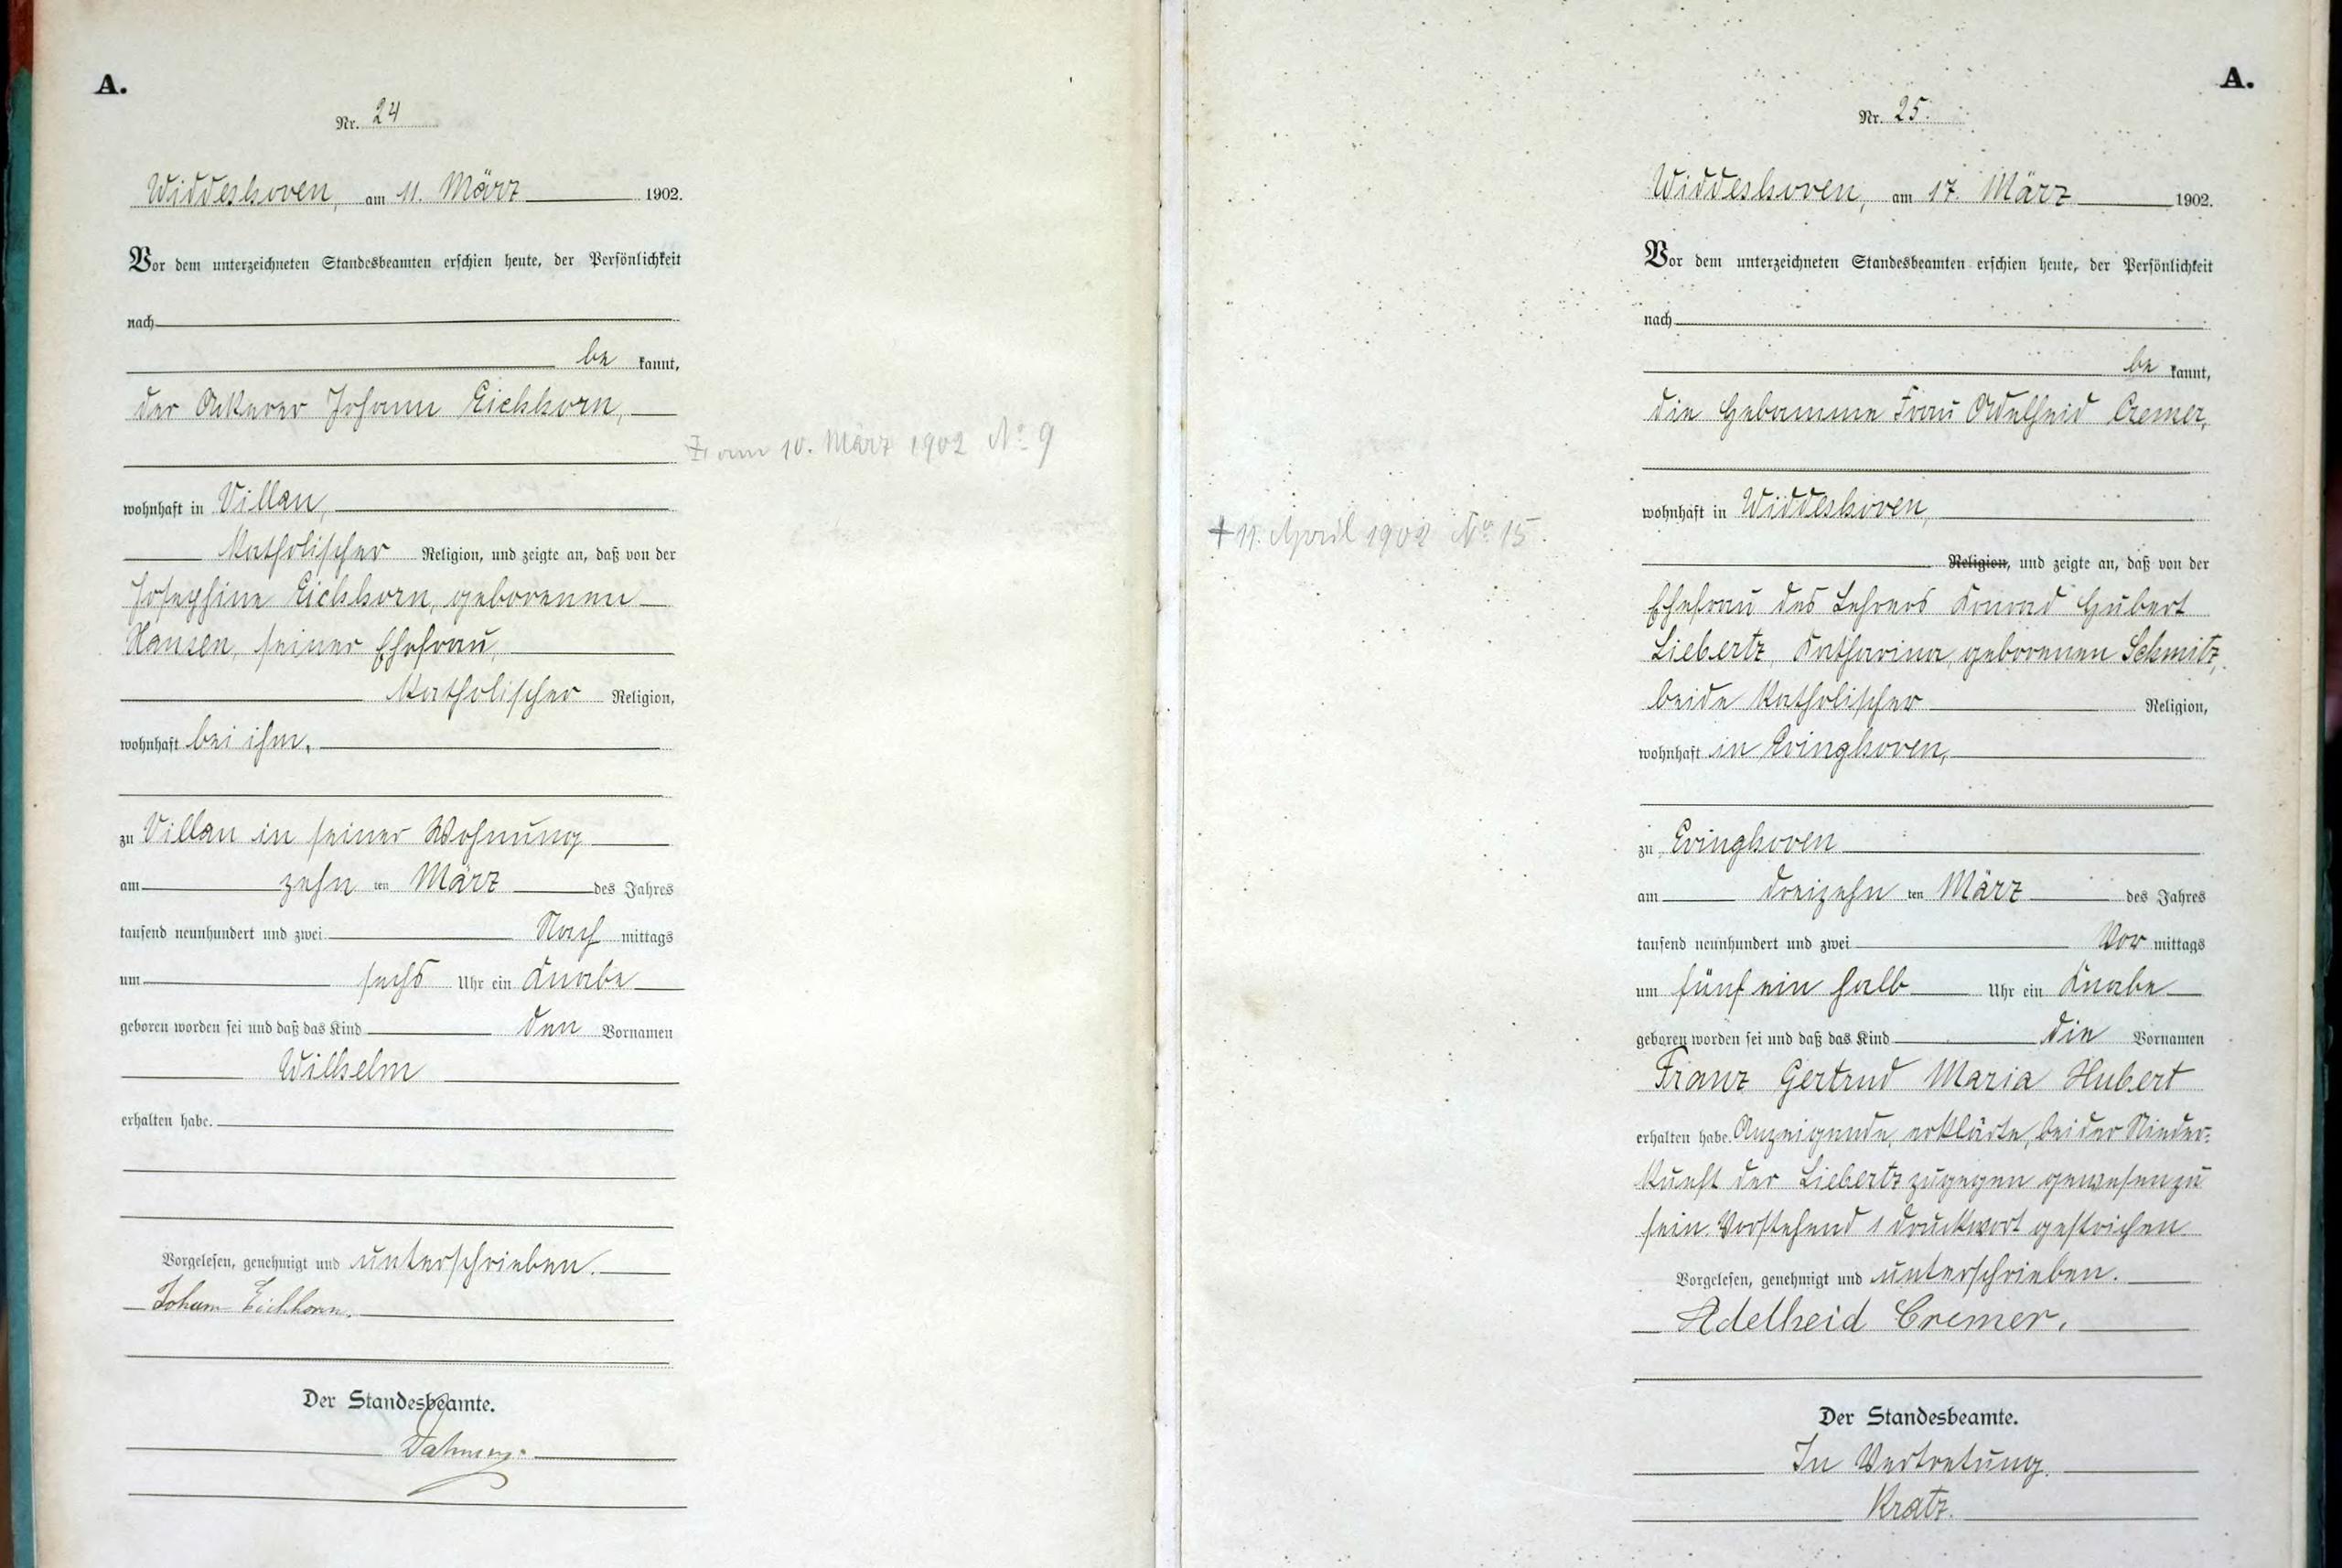 A.
Nr. 24
Widdeshoven, am 11. März 1902.
Vor dem unterzeichneten Standesbeamten erschien heute, der Persönlichkeit
nach
be kannt,
der Ackerer Johann Eichhorn,
wohnhaft in Villau,
katholischer Religion, und zeigte an, daß von der
Josephine Eichhorn, geborenen
Hansen, seiner Ehefrau,
katholischer Religion,
wohnhaft bei ihm,
zu Villau in seiner Wohnung
am zehn ten März des Jahres
tausend neunhundert und zwei Nach mittags
um sechs Uhr ein Knabe
geboren worden sei und daß das Kind den Vornamen
Wilhelm
erhalten habe.
Vorgelesen, genehmigt und unterschrieben.
Johann Eichhorn.
Der Standesbeamte.
am 10. März 1902 No 9
A.
Nr. 25.
Widdeshoven, am 17. März 1902.
Vor dem unterzeichneten Standesbeamten erschien heute, der Persönlichkeit
nach
be kannt,
die Hebamme Frau Adelheid Cremer,
wohnhaft in Widdeshoven,
Religion, und zeigte an, daß von der
Ehefrau des Lehrers Konrad Hubert
Liebertz, Katharina, geborenen Schmitz,
beide katholischer Religion,
wohnhaft in Evinghoven,
zu Evinghoven
am dreizehn ten März des Jahres
tausend neunhundert und zwei Vor mittags
um fünf ein halb Uhr ein Knabe
geboren worden sei und daß das Kind die Vornamen
Franz Gertrud Maria Hubert
erhalten habe. Anzeigende, erklärte, bei der Nieder-
kunft der Liebertz zugegen gewesen zu
sein. Vorstehend 1 Druckwort gestrichen
Vorgelesen, genehmigt und unterschrieben.
Adelheid Cremer.
Der Standesbeamte.
In Vertretung.
Kratz.
† 11. April 1902 No 15.